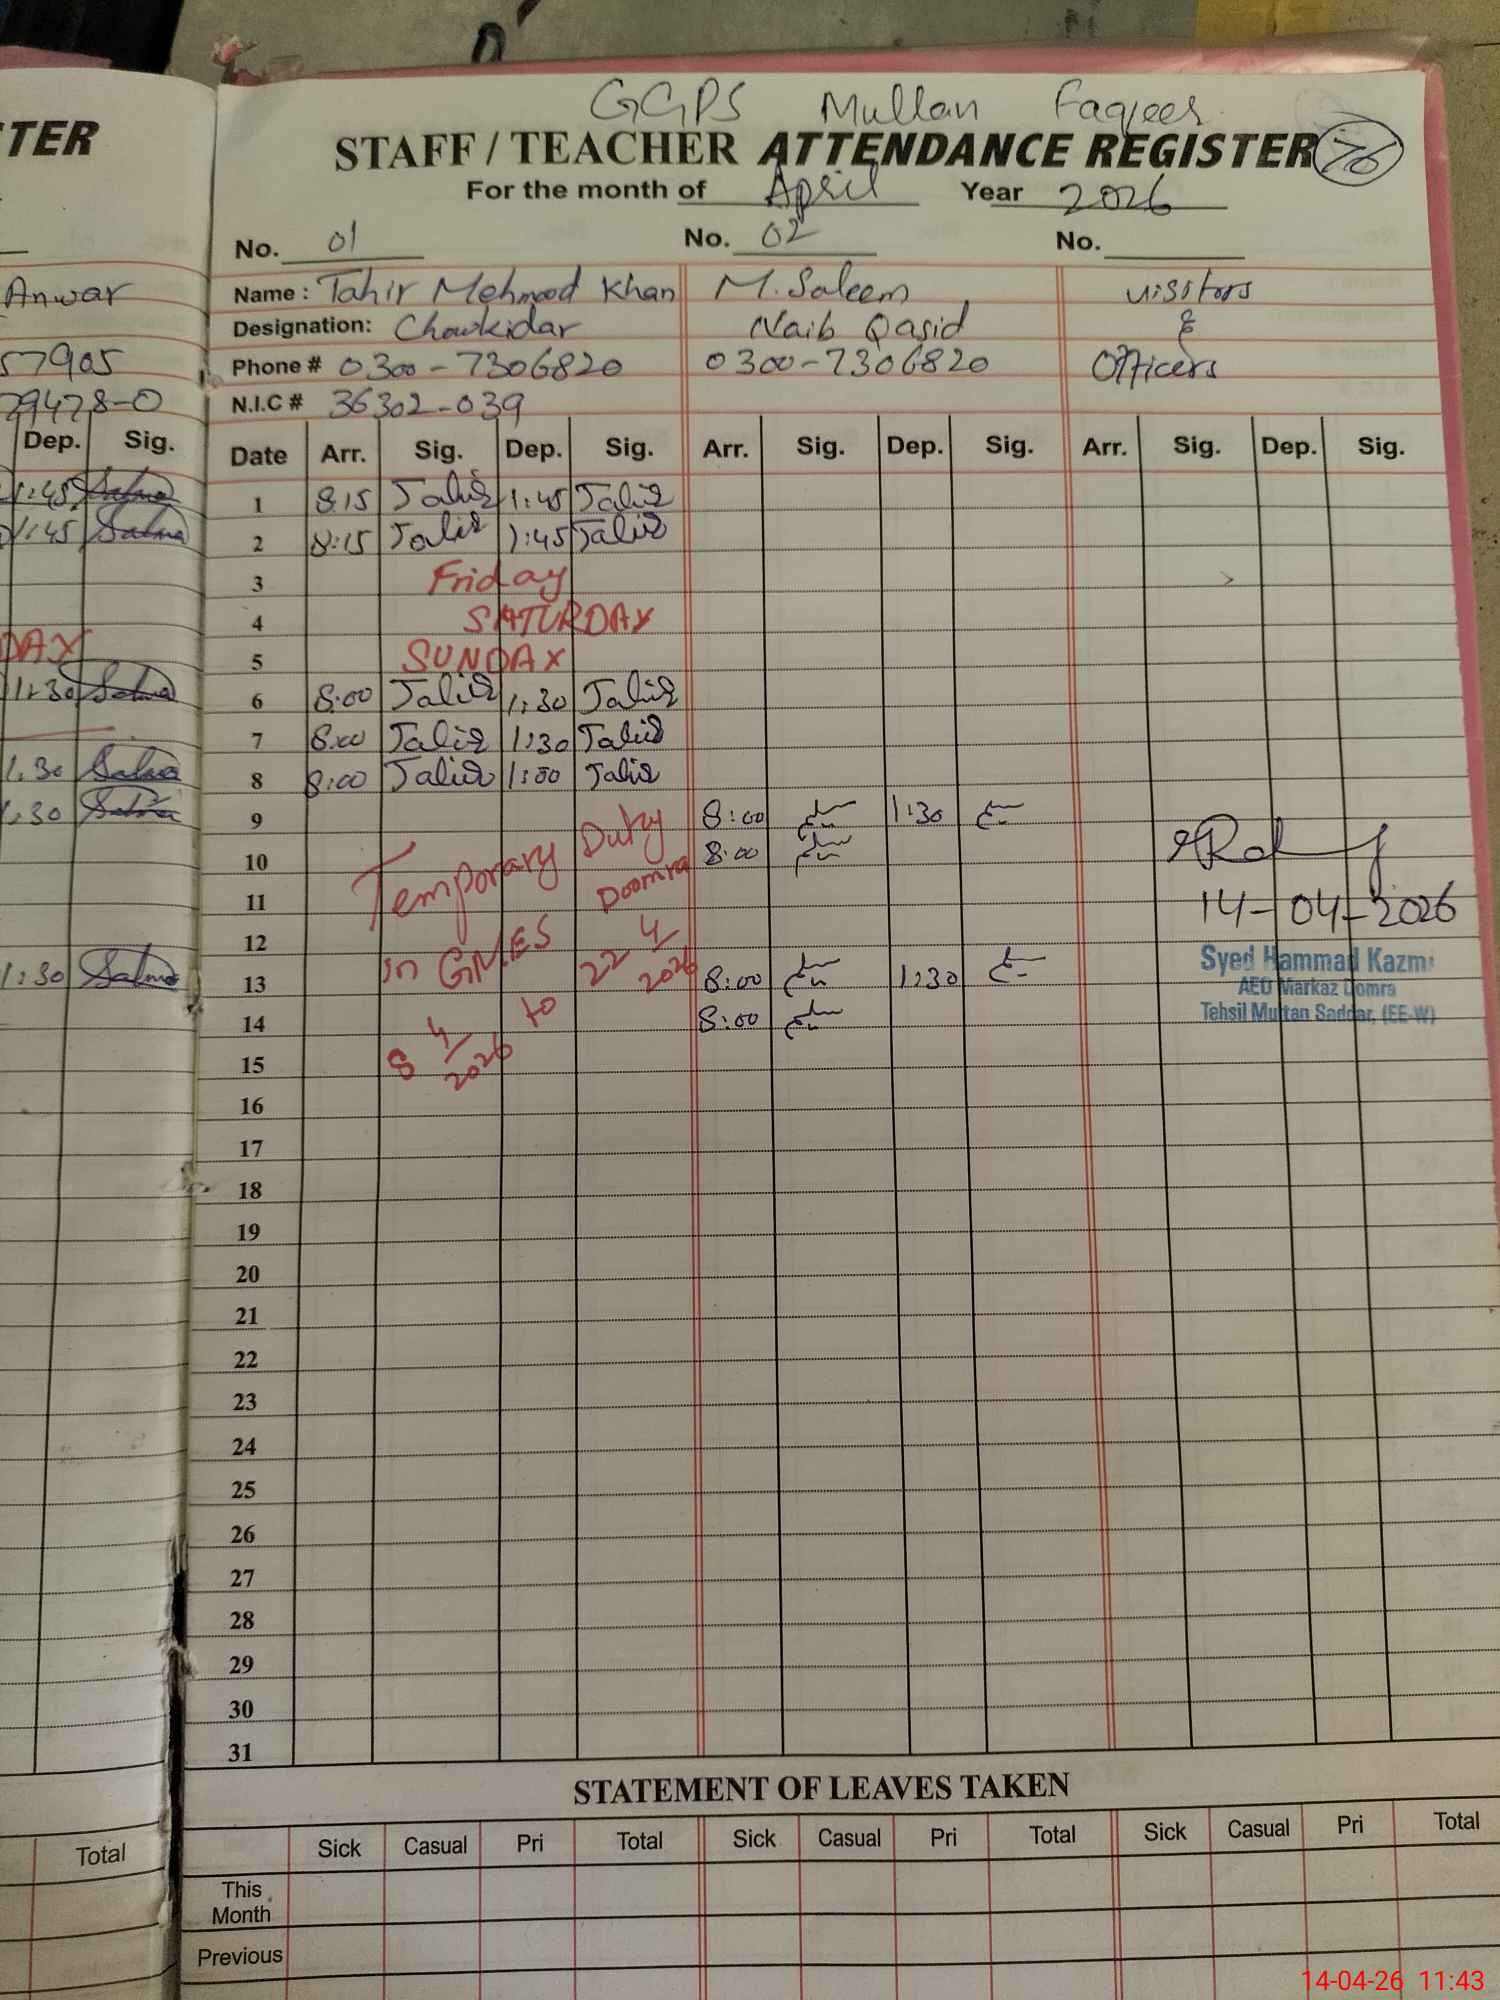 GGPS Mullan Faqeer
TER
STAFF / TEACHER ATTENDANCE REGISTER 76
For the month of April Year 2026
No. 01 No. 02 No.
Anwar
Name : Tahir Mehmood Khan M. Saleem visitors
Designation: Chowkidar Naib Qasid &
57905
Phone # 0300-7306820 0300-7306820 officers
29478-0
N.I.C # 36302-039
Dep. Sig.
Date Arr. Sig. Dep. Sig. Arr. Sig. Dep. Sig. Arr. Sig. Dep. Sig.
1:45 Salma
1 8:15 Tahir 1:45 Tahir
1:45 Salma
2 8:15 Tahir 1:45 Tahir
3 Friday
4 SATURDAY
DAY
5 SUNDAY
1:30 Salma
6 8:00 Tahir 1:30 Tahir
7 8:00 Tahir 1:30 Tahir
1:30 Salma
8 8:00 Tahir 1:00 Tahir
1:30 Salma
9 8:00 سلیم 1:30
10 8:00 سلیم
Temporary Duty
11 14-04-2026
Doomra
12
in GMES 22/4/2026
Syed Hammad Kazmi
1:30 Salma
13 8:00 سلیم 1:30
AEO Markaz Domra
to
14 8:00 سلیم
Tehsil Multan Saddar, (EE-W)
8/4/2026
15
16
17
18
19
20
21
22
23
24
25
26
27
28
29
30
31
STATEMENT OF LEAVES TAKEN
Total
Sick Casual Pri Total Sick Casual Pri Total Sick Casual Pri Total
This
Month
Previous
14-04-26 11:43